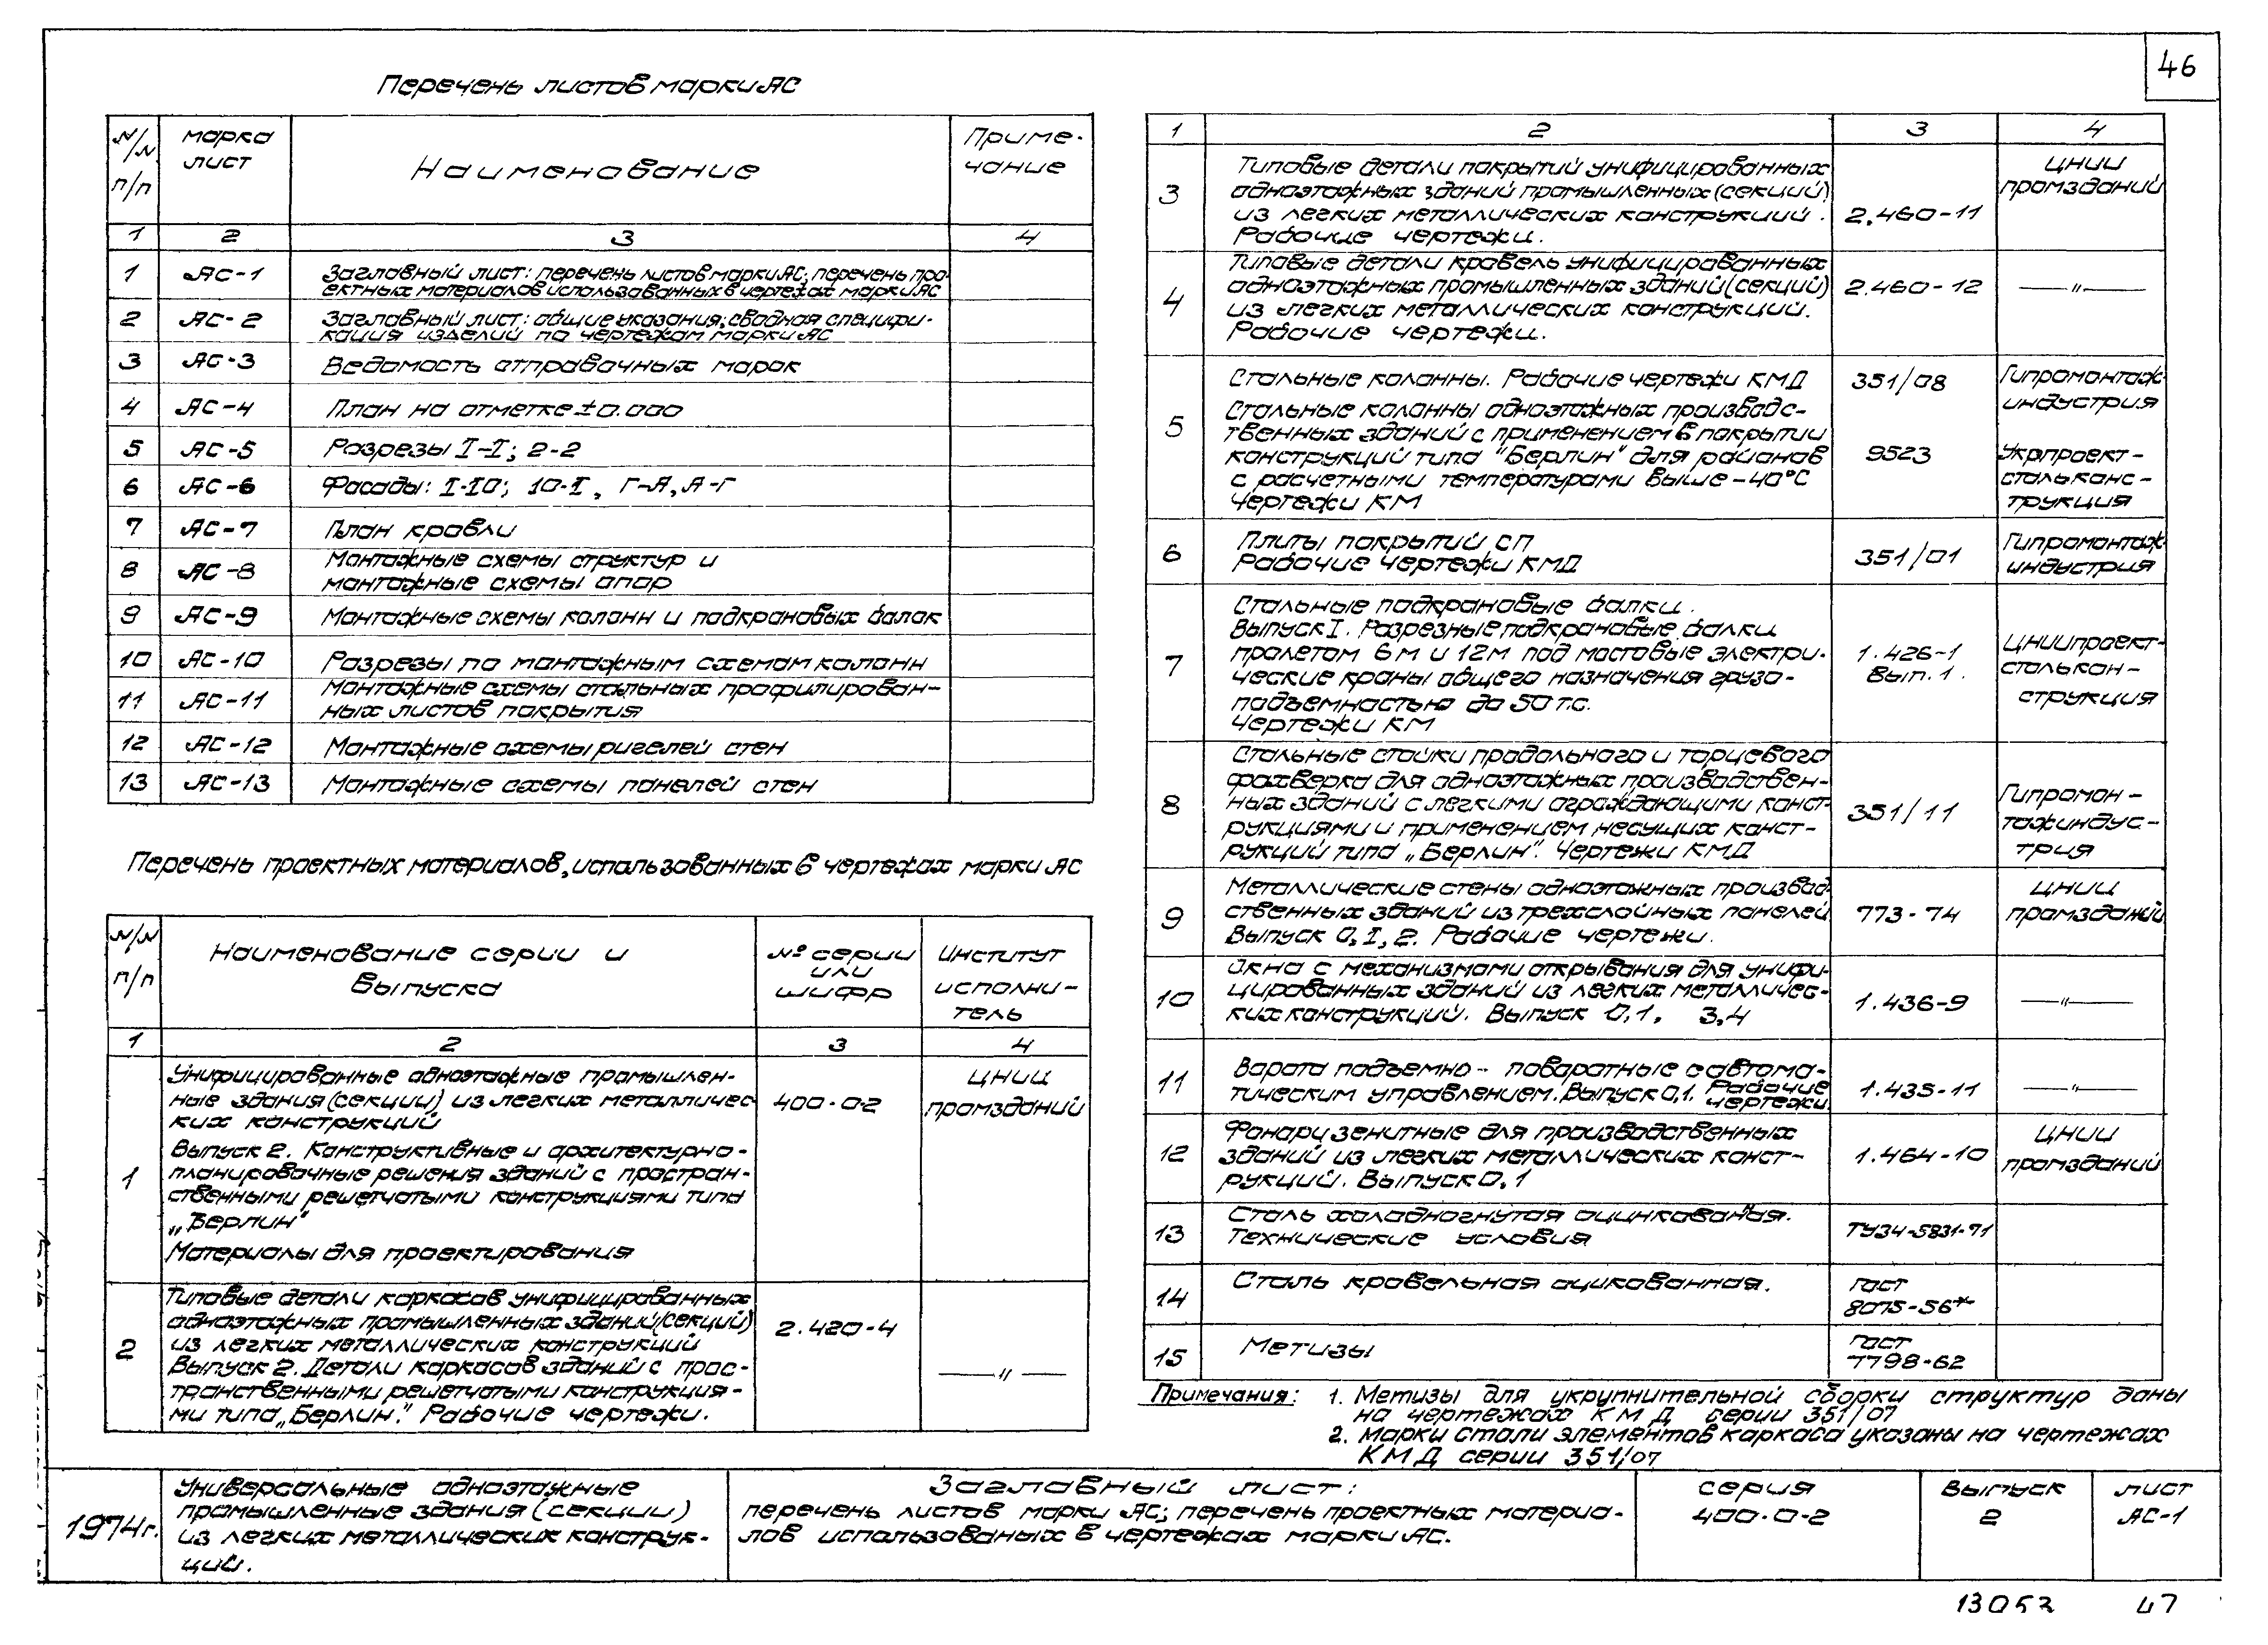 46
Перечень листов марки АС
N/N п/п
марка лист
Наименование
Примечание
1 2 3 4
1 АС-1 Заглавный лист: перечень листов марки АС; перечень про-
ектных материалов использованных в чертежах марки АС
2 АС-2 Заглавный лист: общие указания; сводная специфи-
кация изделий по чертежам марки АС
3 АС-3 Ведомость отправочных марок
4 АС-4 План на отметке ±0.000
5 АС-5 Разрезы I-I; 2-2
6 АС-6 Фасады: I-IO; 10-I, Г-А, А-Г
7 АС-7 План кровли
8 АС-8 Монтажные схемы структур и
монтажные схемы опор
9 АС-9 Монтажные схемы колонн и подкрановых балок
10 АС-10 Разрезы по монтажным схемам колонн
11 АС-11 Монтажные схемы стальных профилирован-
ных листов покрытия
12 АС-12 Монтажные схемы ригелей стен
13 АС-13 Монтажные схемы панелей стен
Перечень проектных материалов, использованных в чертежах марки АС
N/N п/п
Наименование серии и
выпуска
№ серии
или
шифр
Институт
исполни-
тель
1 2 3 4
1 Унифицированные одноэтажные промышлен-
ные здания (секции) из легких металличес-
ких конструкций
400-0-2
ЦНИИ
промзданий
Выпуск 2. Конструктивные и архитектурно-
планировочные решения зданий с простран-
ственными решетчатыми конструкциями типа
„Берлин"
Материалы для проектирования
2 Типовые детали каркасов унифицированных
одноэтажных промышленных зданий (секций)
из легких металлических конструкций
Выпуск 2. Детали каркасов зданий с прос-
транственными решетчатыми конструкция-
ми типа „Берлин." Рабочие чертежи.
2.420-4
—"—
1 2 3 4
3 Типовые детали покрытий унифицированных
одноэтажных зданий промышленных (секций)
из легких металлических конструкций.
Рабочие чертежи.
2.460-11
ЦНИИ
промзданий
4 Типовые детали кровель унифицированных
одноэтажных промышленных зданий (секций)
из легких металлических конструкций.
Рабочие чертежи.
2.460-12
—"—
5 Стальные колонны. Рабочие чертежи КМД
351/08
Гипромонтаж-
индустрия
Стальные колонны одноэтажных производс-
твенных зданий с применением в покрытии
конструкций типа "Берлин" для районов
с расчетными температурами выше -40°С
Чертежи КМ
9523
Укрпроект-
стальконс-
трукция
6 Плиты покрытий СП
Рабочие чертежи КМД
351/01
Гипромонтаж
индустрия
7 Стальные подкрановые балки.
Выпуск I. Разрезные подкрановые балки
пролетом 6м и 12м под мостовые электри-
ческие краны общего назначения грузо-
подъемностью до 50 т.с.
Чертежи КМ
1.426-1
Вып. 1.
ЦНИИпроект-
сталькон-
струкция
8 Стальные стойки продольного и торцевого
фахверка для одноэтажных производствен-
ных зданий с легкими ограждающими конст-
рукциями и применением несущих конст-
рукций типа „Берлин". Чертежи КМД
351/11
Гипромон-
тажиндус-
трия
9 Металлические стены одноэтажных производ
ственных зданий из трехслойных панелей
Выпуск 0, I, 2. Рабочие чертежи.
773-74
ЦНИИ
промзданий
10 Окна с механизмами открывания для унифи-
цированных зданий из легких металличес-
ких конструкций. Выпуск 0,1, 3,4
1.436-9
—"—
11 Ворота подъемно-поворотные с автома-
тическим управлением. Выпуск 0,1. Рабочие
чертежи
1.435-11
—"—
12 Фонари зенитные для производственных
зданий из легких металлических конст-
рукций. Выпуск 0,1
1.464-10
ЦНИИ
промзданий
13 Сталь холодногнутая оцинкованная.
Технические условия
ТУ34-5831-71
14 Сталь кровельная оцикованная.
ГОСТ
8075-56*
15 Метизы
ГОСТ
7798-62
Примечания: 1. Метизы для укрупнительной сборки структур даны
на чертежах КМД серии 351/07
2. Марки стали элементов каркаса указаны на чертежах
КМД серии 351/07
1974г.
Универсальные одноэтажные
промышленные здания (секции)
из легких металлических конструк-
ций.
Заглавный лист:
перечень листов марки АС; перечень проектных материа-
лов использованых в чертежах марки АС.
серия
400-0-2
Выпуск
2
лист
АС-1
13053 47